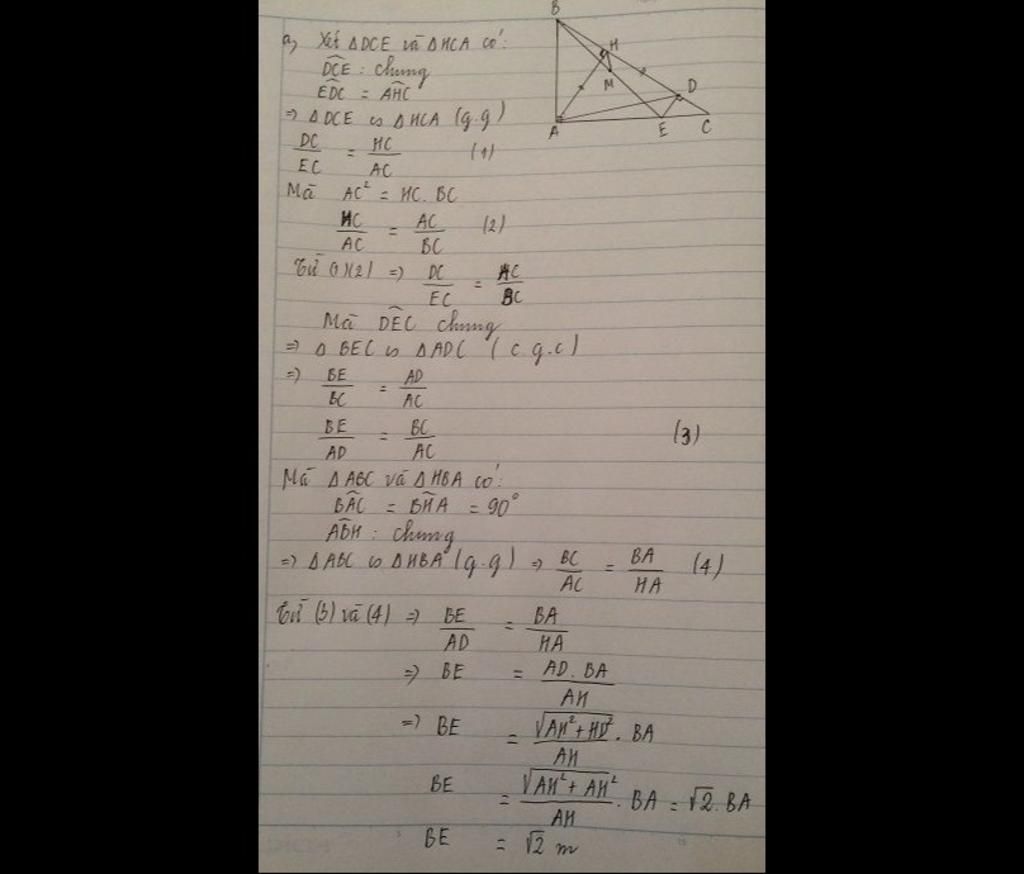 B
H
M
D
A
E
C
a, Xét ΔDCE và ΔHCA có:
\widehat{DCE} : chung
\widehat{EDC} = \widehat{AHC}
=> ΔDCE ∽ ΔHCA (g.g)
DC/EC = HC/AC (1)
Mà AC² = HC. BC
HC/AC = AC/BC (2)
Từ (1)(2) => DC/EC = AC/BC
Mà \widehat{DEC} chung
=> Δ BEC ∽ ΔADC ( c.g.c)
=> BE/BC = AD/AC
BE/AD = BC/AC (3)
Mà ΔABC và ΔHBA có:
\widehat{BAC} = \widehat{BHA} = 90°
\widehat{ABH} : chung
=> ΔABC ∽ ΔHBA (g.g) => BC/AC = BA/HA (4)
Từ (3) và (4) => BE/AD = BA/HA
=> BE = AD. BA/AH
=> BE = √(AH² + HD²)/AH . BA
BE = √(AH² + AH²)/AH . BA = √2. BA
BE = √2 m